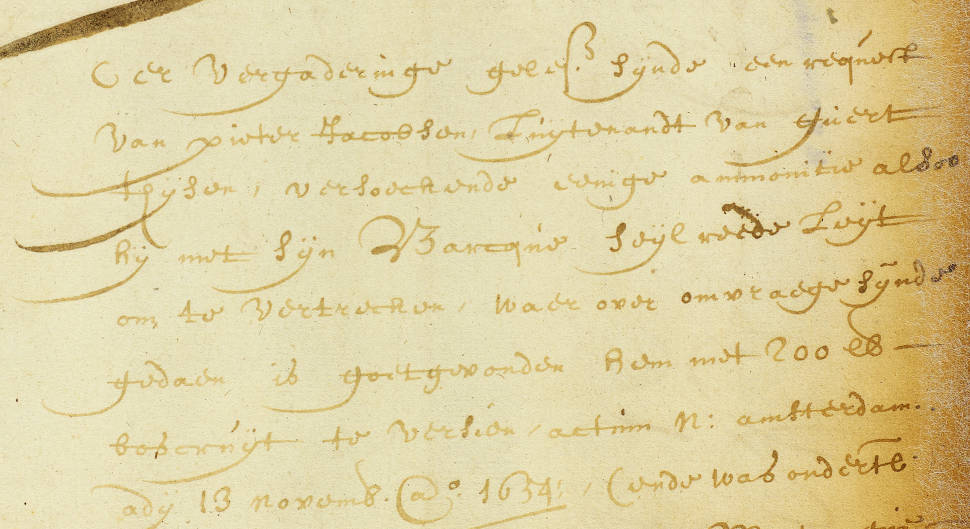 Ter vergaderinge geles. sijnde een request
van pieter Jacobsen, Luijtenandt van guert
thijsen, versoeckende eenige ammonitie alsoo
hij met sijn Barcque seijl reede Leijt
om te vertrecken, waer over omvraege sijnde
gedaen is goetgevonden hem met 200 lb
boscruijt te versien, actum N: amsterdam.
adij 13 novemb. (ao. 1654:, (ende was ondertl.